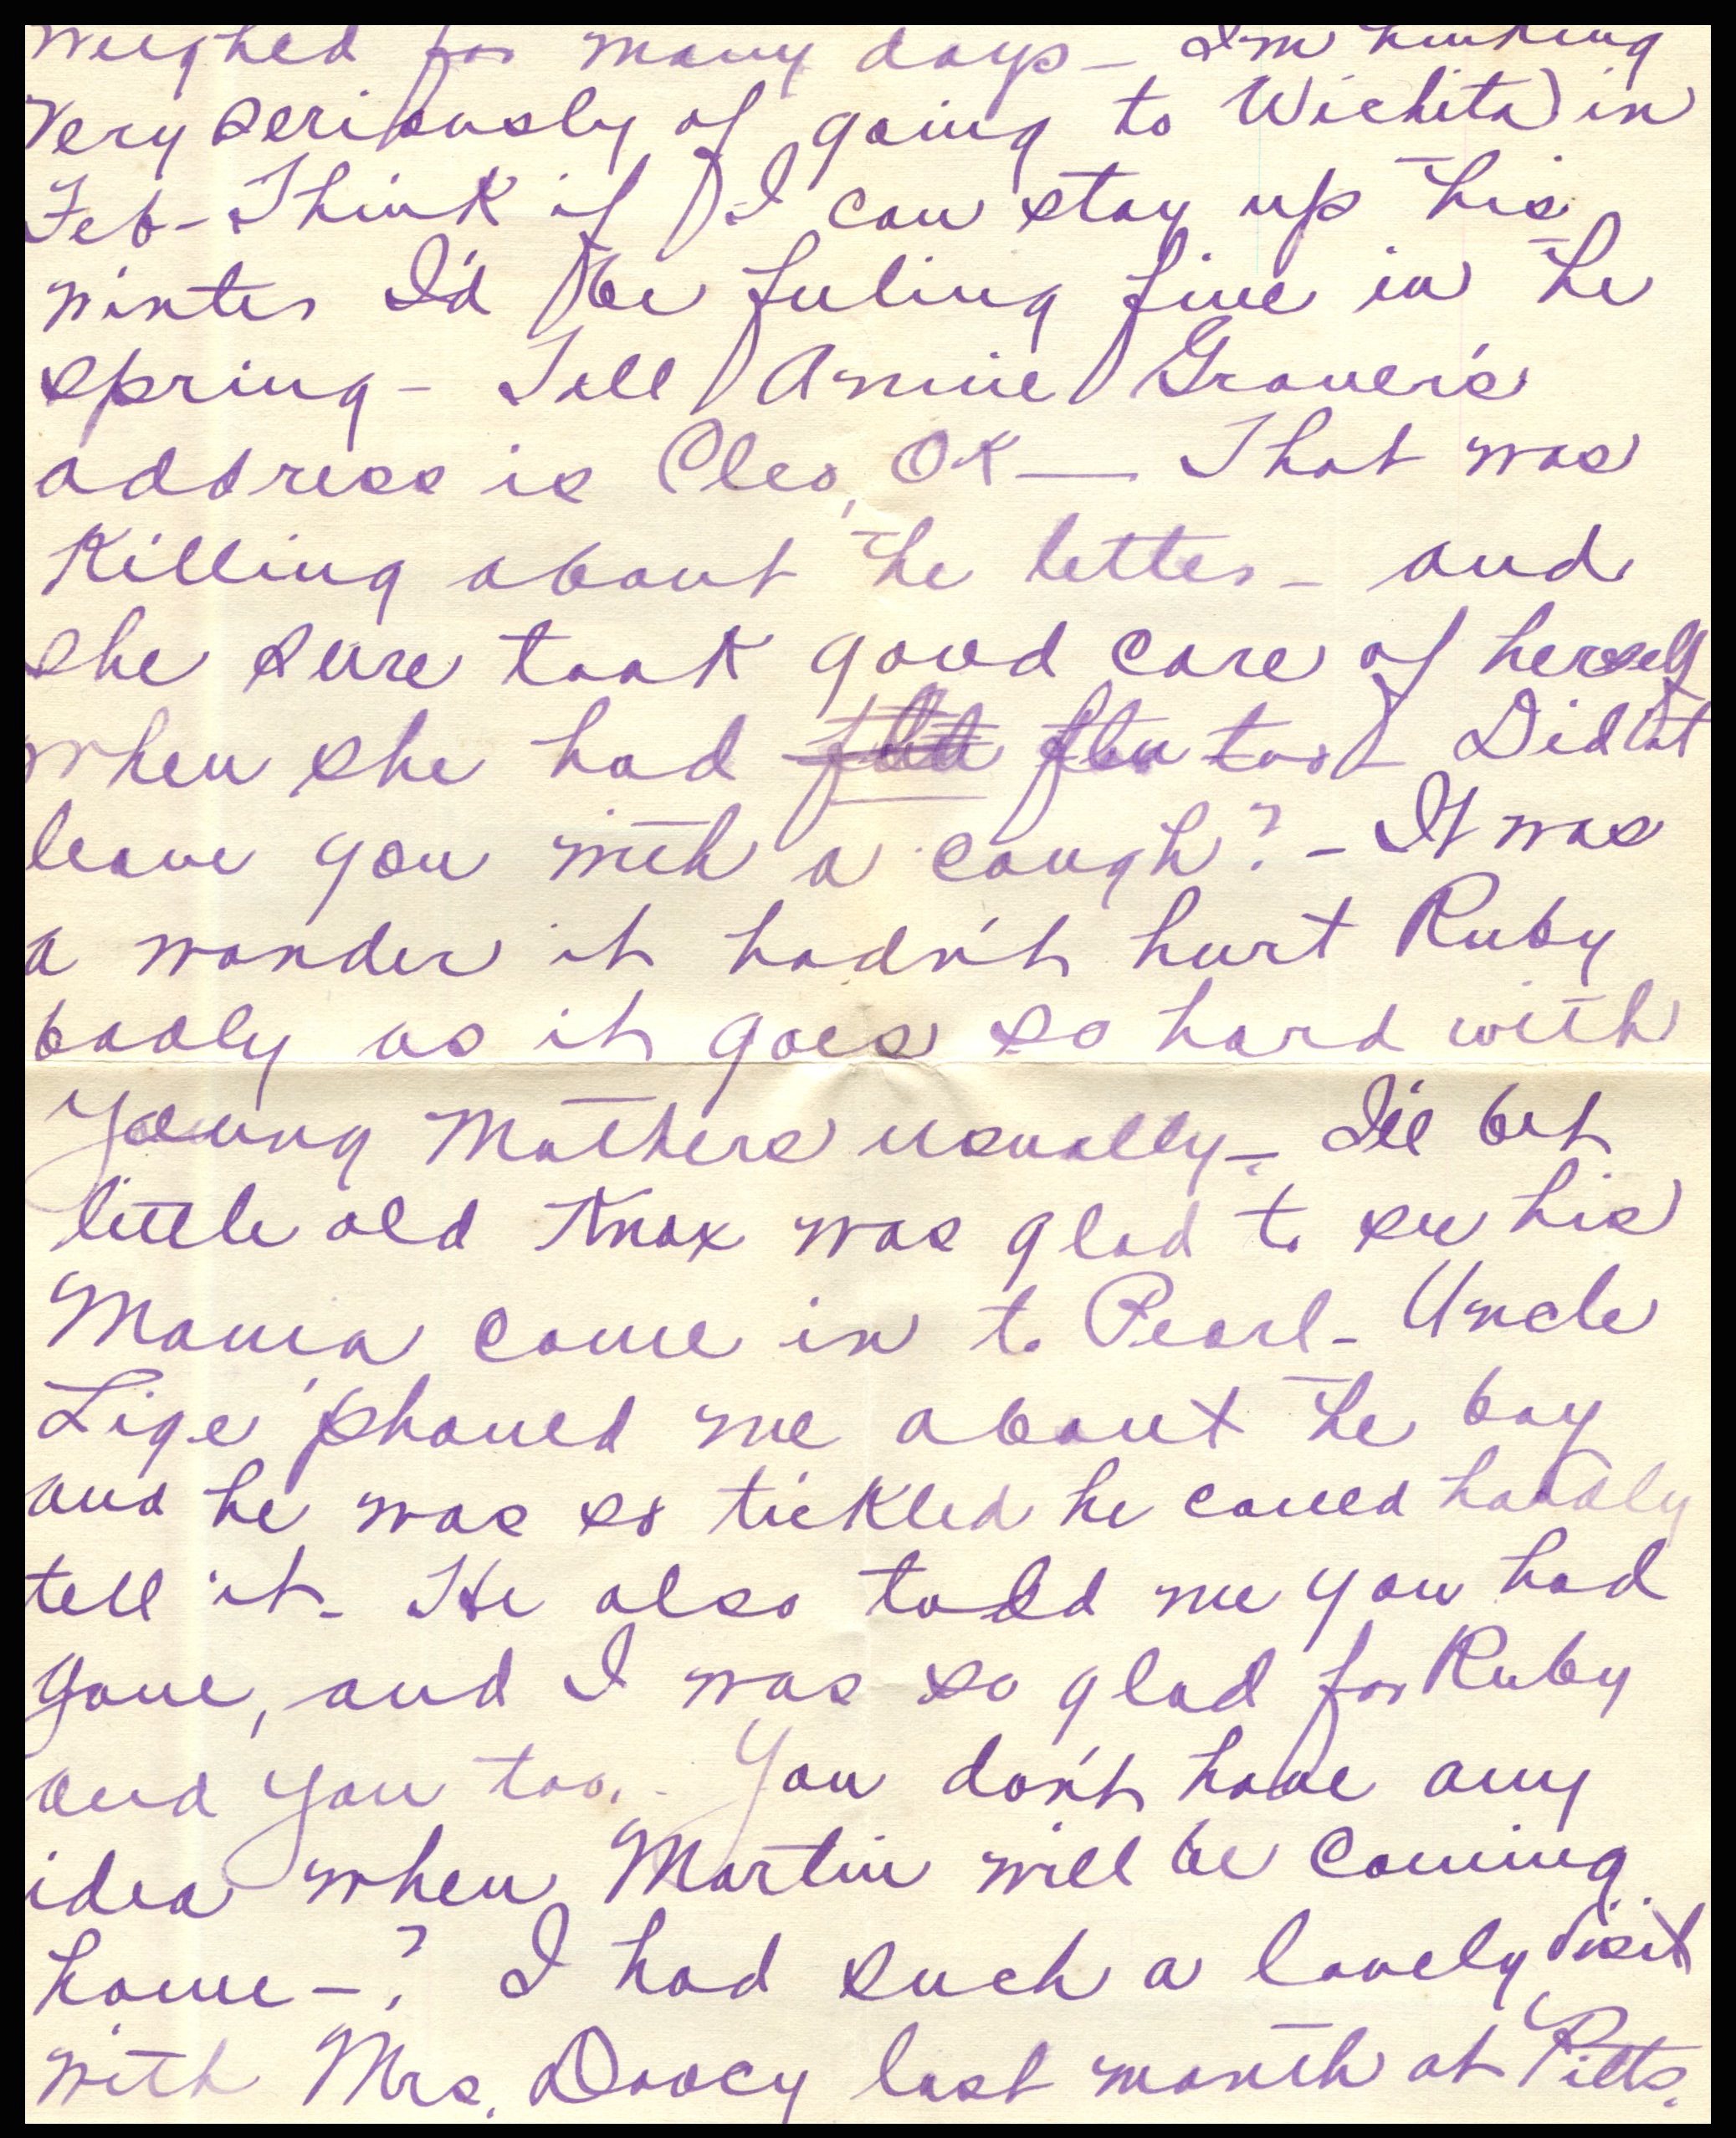 weighed for many days - I'm thinking
very seriously of going to Wichita in
Feb - Think if I can stay up this
winter I'd be feeling fine in the
spring - Tell Annie Grover's
address is Cleo, OK — That was
Killing about the letter - and
she sure took good care of herself
when she had flu too - Did it
leave you with a cough? - It was
a wonder it hadn't hurt Ruby
badly as it goes so hard with
Young Mothers usually - I'll bet
little old Knox was glad to see his
Mama come in to Pearl - Uncle
Lige 'phoned me about the boy
and he was so tickled he could hardly
tell it - He also told me you had
gone, and I was so glad for Ruby
and you too. - You don't have any
idea when Martin will be coming
home - ? I had such a lovely visit
with Mrs. Doocy last month at Pitts.